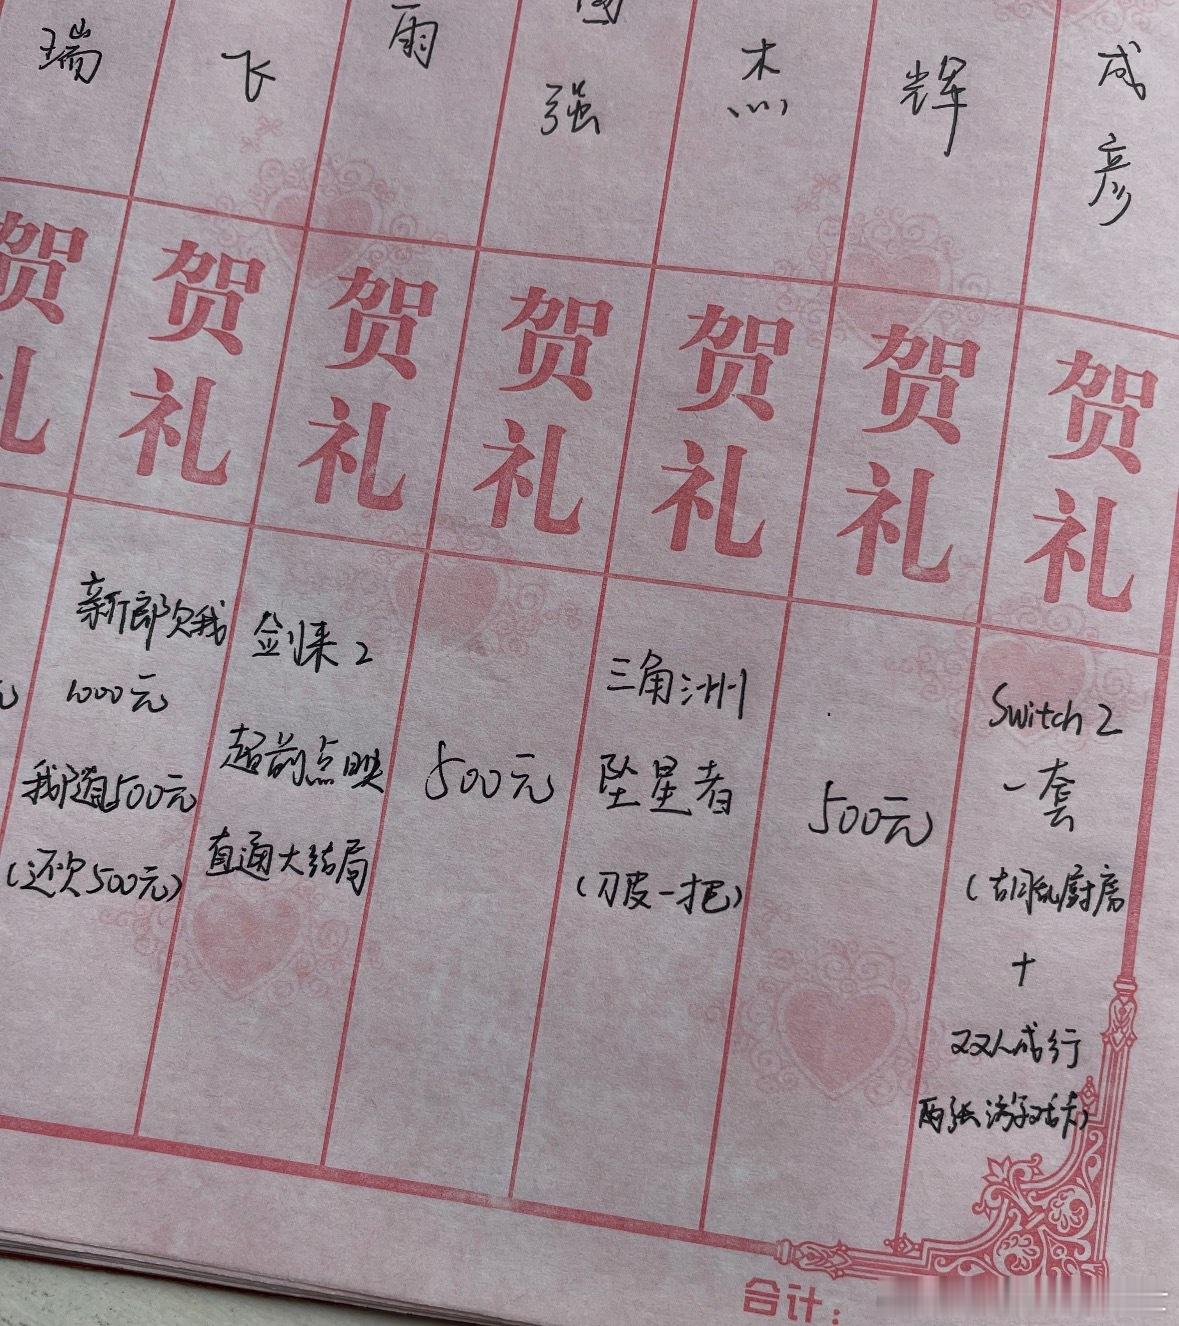 瑞
飞
雨
强
杰
辉
成
彦
贺礼
贺礼
贺礼
贺礼
贺礼
贺礼
贺礼
元
新郎欠我
1000元
我随500元
(还欠500元)
剑来2
超前点映
直通大结局
500元
三角洲
坠星者
(刀皮一把)
500元
Switch 2
一套
(胡闹厨房
+
双人成行
两张游戏卡)
合计: